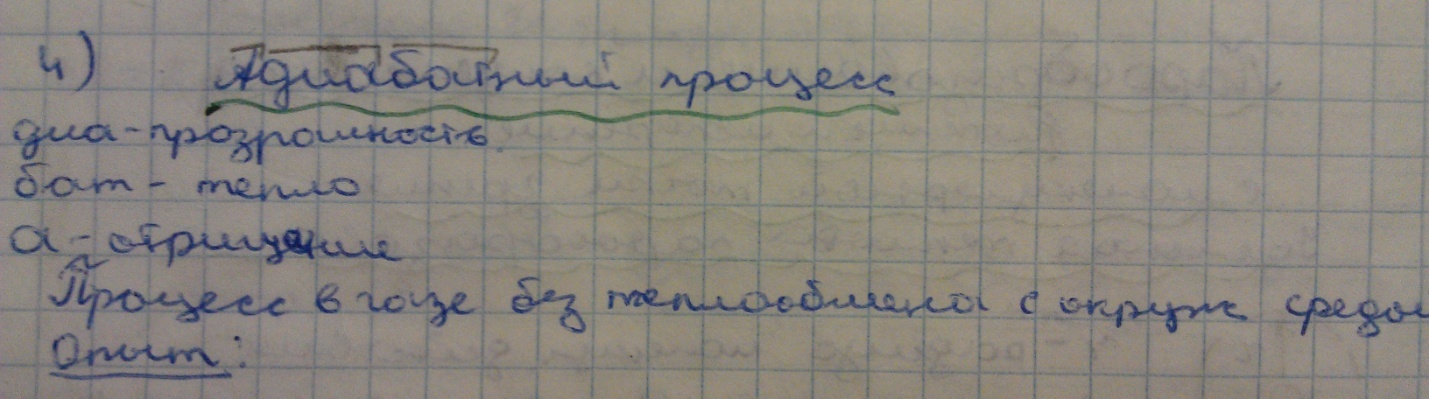 4) Адиабатный процесс
диа-прозрачность
бат - тепло
а - отрицание
Процесс в газе без теплообмена с окруж средой
Опыт: